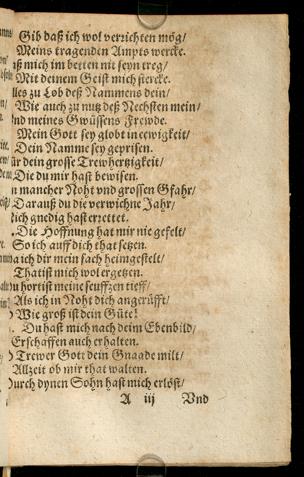 Gib daß ich wol verrichten mög/
Meins tragenden Ampts wercke.
ß mich im betten nit seyn treg/
Mit deinem Geist mich stercke.
lles zu Lob deß Nammens dein/
Wie auch zu nutz deß Nechsten mein/
nd meines Gwüssens Frewde.
Mein Gott sey globt in eewigkeit/
Dein Namme sey geprisen.
ür dein grosse Trewhertzigkeit/
Die du mir hast bewisen.
n mancher Noht vnd grossen Gfahr/
Darauß du die verwichne Jahr/
ich gnedig hast errettet.
Die Hoffnung hat mir nie gefelt/
So ich auff dich that setzen.
a ich dir mein sach heimgestelt/
That ist mich wol ergetzen.
u hortist meine seuffzen tieff/
Als ich in Noht dich angerüfft/
Wie groß ist dein Güte!
Du hast mich nach deim Ebenbild/
Erschaffen auch erhalten.
Trewer Gott dein Gnaade milt/
Allzeit ob mir that walten.
urch dynen Sohn hast mich erlöst/
A iij Vnd